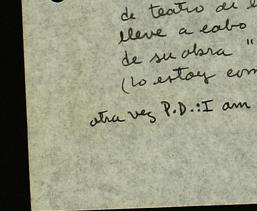 de teatro de l
lleve a cabo
de su obra "
(lo estoy com
otra vez P.D.:I am